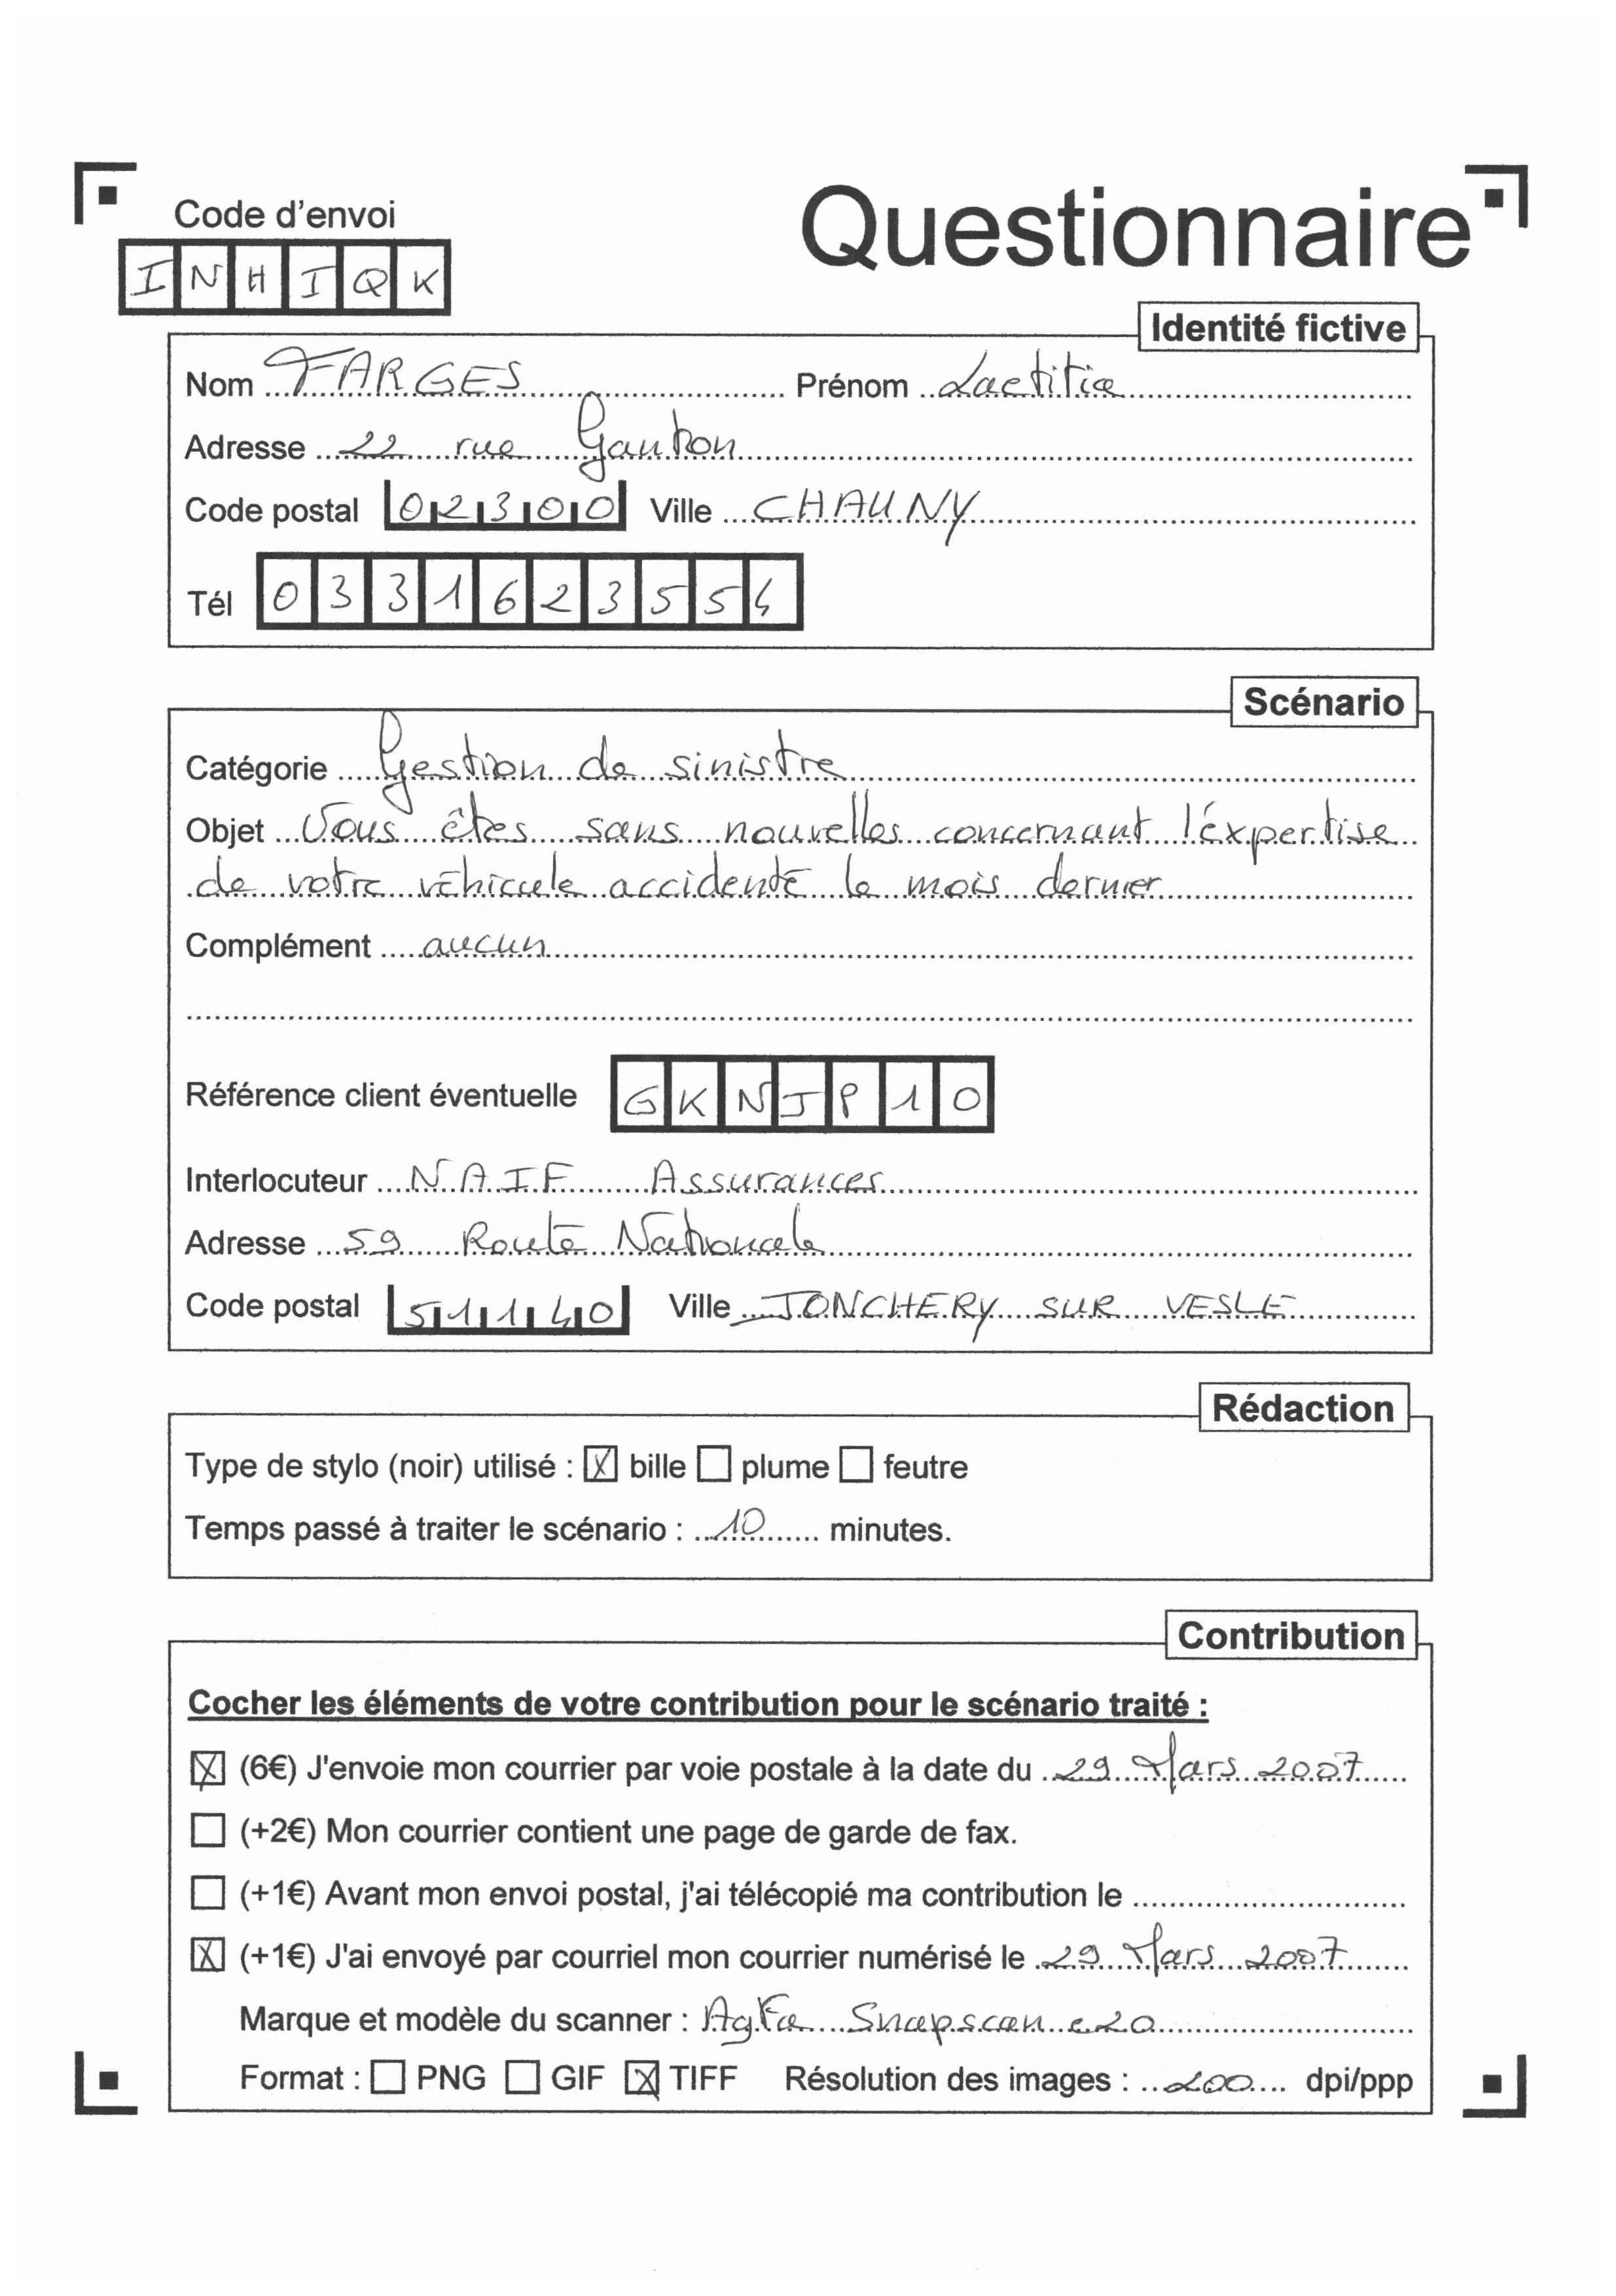 Code d'envoi
Questionnaire
INHIQK
Identité fictive
Nom FARGES Prénom Laetitia
Adresse 22 rue
Code postal 02300 Ville CHAUNY
Tél 0331623554
Scénario
Catégorie Gestion de sinistre
Objet Vous êtes sans nouvelles concernant l'expertise
de votre véhicule accidenté le mois dernier
Complément aucun
Référence client éventuelle GKNJP10
Interlocuteur NAIF Assurances
Adresse 59 Route Nationale
Code postal 51140 Ville JONCHERY SUR VESLE
Rédaction
Type de stylo (noir) utilisé : ☒ bille ☐ plume ☐ feutre
Temps passé à traiter le scénario : 10 minutes.
Contribution
Cocher les éléments de votre contribution pour le scénario traité :
☒ (6€) J'envoie mon courrier par voie postale à la date du 29 Mars 2007
☐ (+2€) Mon courrier contient une page de garde de fax.
☐ (+1€) Avant mon envoi postal, j'ai télécopié ma contribution le
☒ (+1€) J'ai envoyé par courriel mon courrier numérisé le 29 Mars 2007
Marque et modèle du scanner : Agfa Snapscan e20
Format : ☐ PNG ☐ GIF ☒ TIFF Résolution des images : 200 dpi/ppp